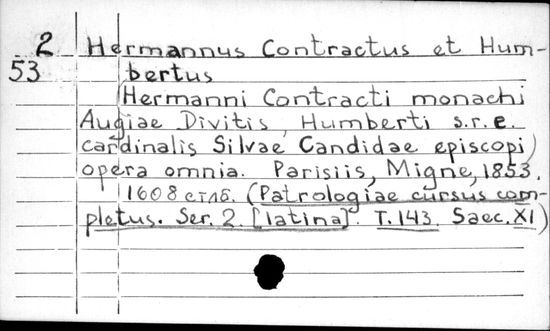 2 Hermannus Contractus et Hum-
53 bertus
Hermanni Contracti monachi
Augiae Divitis, Humberti s.r.e.
cardinalis Silvae Candidae episcopi
opera omnia. Parisiis, Migne, 1853.
1608 стлб. (Patrologiae cursus com-
pletus. Ser. 2. [latina]. T.143. Saec. XI)